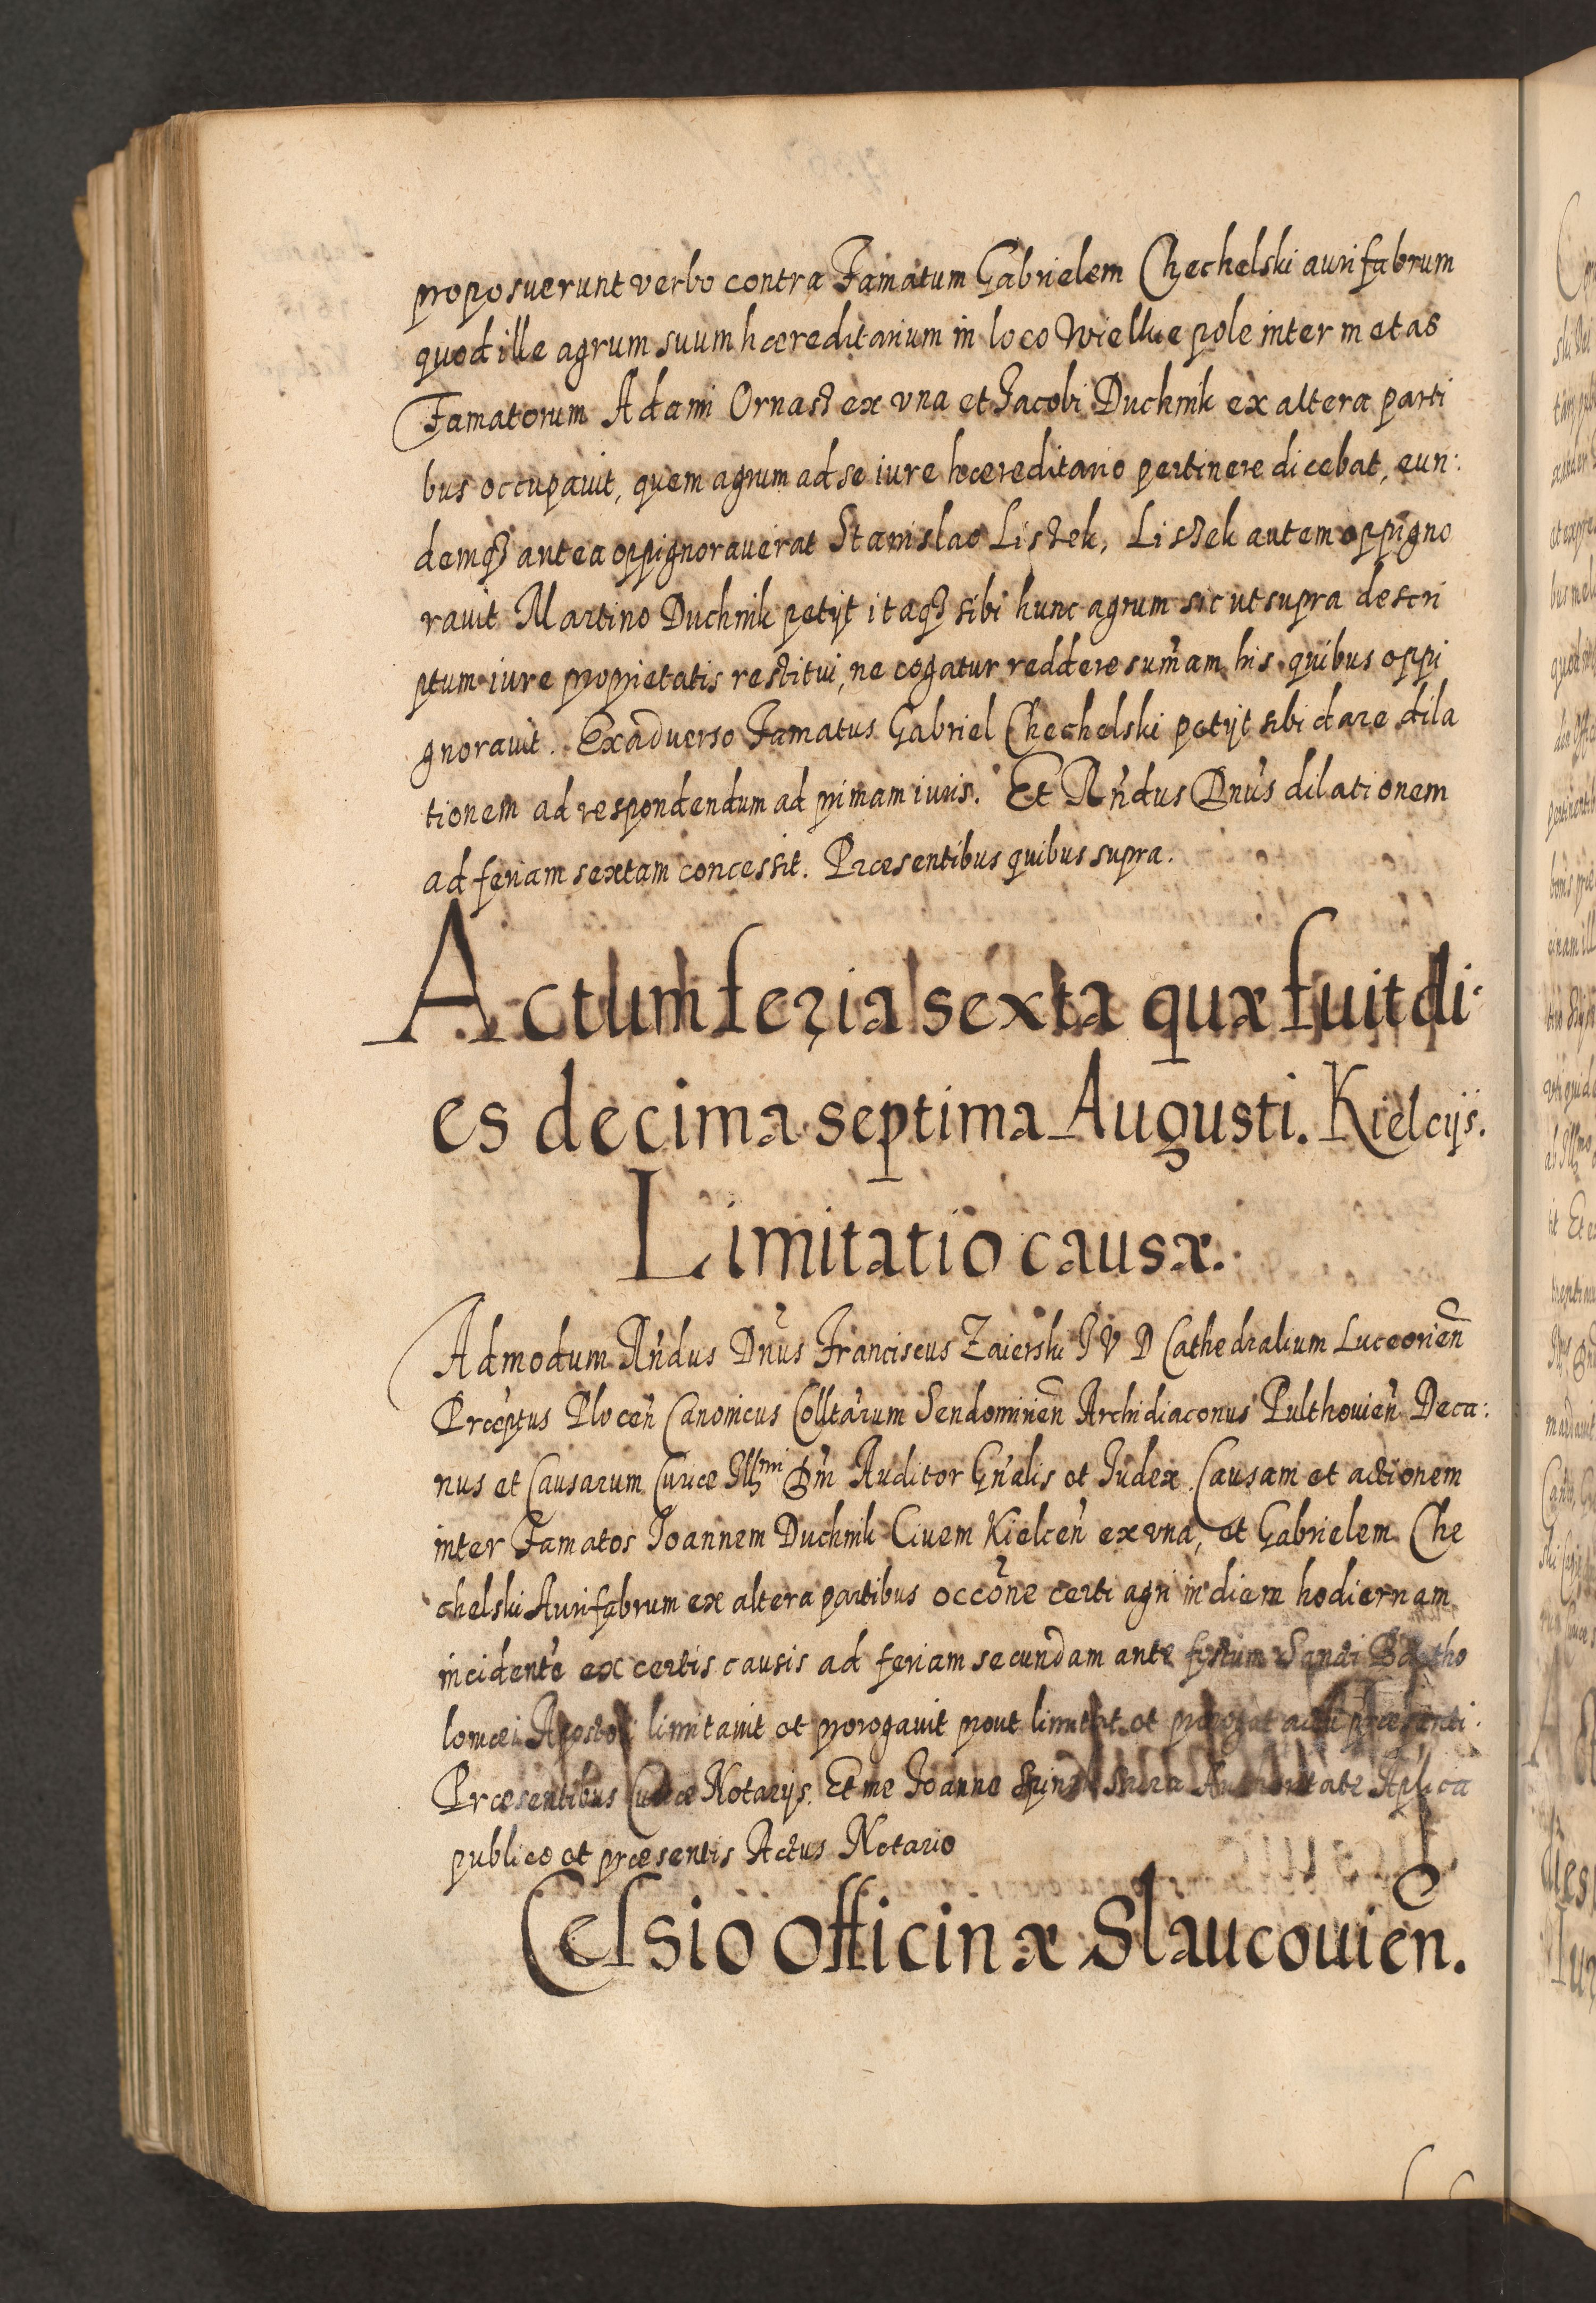 proposuerunt verbo contra Famatum Gabrielem Chechelski aurifabrum
quod ille agrum suum hæreditarium in loco Wielkie pole inter metas
Famatorum Adami Ornasz ex vna et Jacobi Duchnik ex altera parti
bus occupauit, quem agrum ad se iure hæreditario pertinere dicebat, eun:
demqȝ antea oppignorauerat Stanislao Liszek, Liszek autem oppigno
rauit Martino Duchnik petijt itaqȝ sibi hunc agrum sic ut supra descri
ptum iure proprietatis restitui, ne cogatur reddere sum̃am his quibus oppi
gnorauit. Ex aduerso Famatus Gabriel Chechelski petijt sibi dare dila
tionem ad respondendum ad primam iuris. Et Rñdus Dnũs dilationem
ad feriam sextam concessit. Præsentibus quibus supra.
Actum feria sexta quæ fuit di-
es decima septima Augusti. Kielcijs.
Limitatio causæ.
Admodum Rñdus Dnũs Franciscus Zaierski J V D Cathedralium Luceorień
Præptus Ploceń Canonicus Colltarum Sendomirień Archidiaconus Pulthouień Deca:
nus et Causarum Curiæ Illmi Dni Auditor Gnãlis et Judex Causam et actionem
inter Famatos Joannem Duchnik Ciuem Kielceń ex vna, et Gabrielem Che
chelski Aurifabrum ex altera partibus occõne certi agri in diem hodiernam
incidentẽ ex certis causis ad feriam secundam ante festum Sancti Bartho
lomæi Apostoli limitauit et prorogauit prout limitat et prorogat actu præsenti.
Præsentibus Curiæ Notarijs. Et me Joanne Sacra Authoritate Aplica
publico et præsentis Actus Notario
Celsio officinæ Slaucouień.